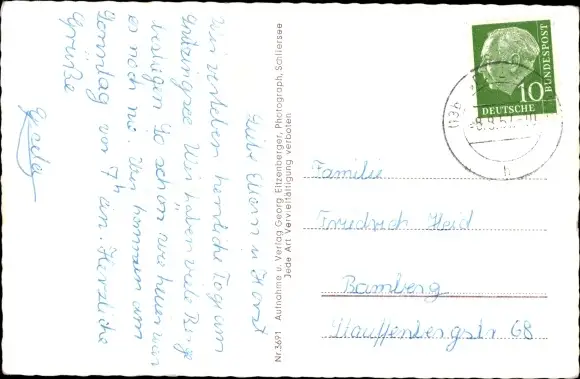 Liebe Eltern u. Horst
Wir verleben herrliche Tage am
Wir haben viele Berge
So schön wie heuer war
es noch nie. Wir kommen am
Sonntag vor 7h an. Herzliche
Grüße
Gisela
Nr. 3691 Aufnahme u. Verlag Georg Eitzenberger, Photograph, Schliersee
Jede Art Vervielfältigung verboten
10
DEUTSCHE
BUNDESPOST
(13b
-8.9.57.-10
h
Familie
Friedrich Heid
Bamberg
Stauffenbergstr 68